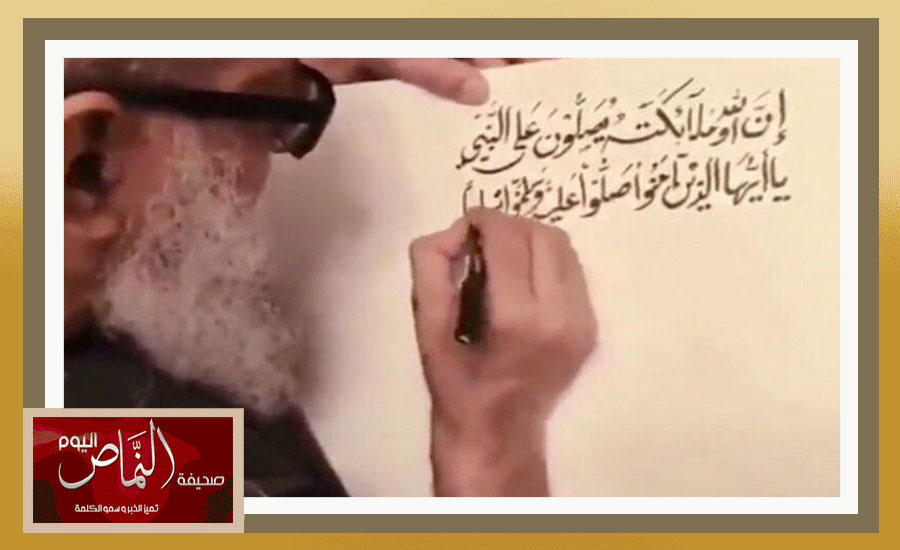 إن الله وملائكته يصلون على النبي
يا أيها الذين آمنوا صلوا عليه وسلموا تسليما
صحيفة النماص اليوم
تميز الخبر و سمو الكلمة